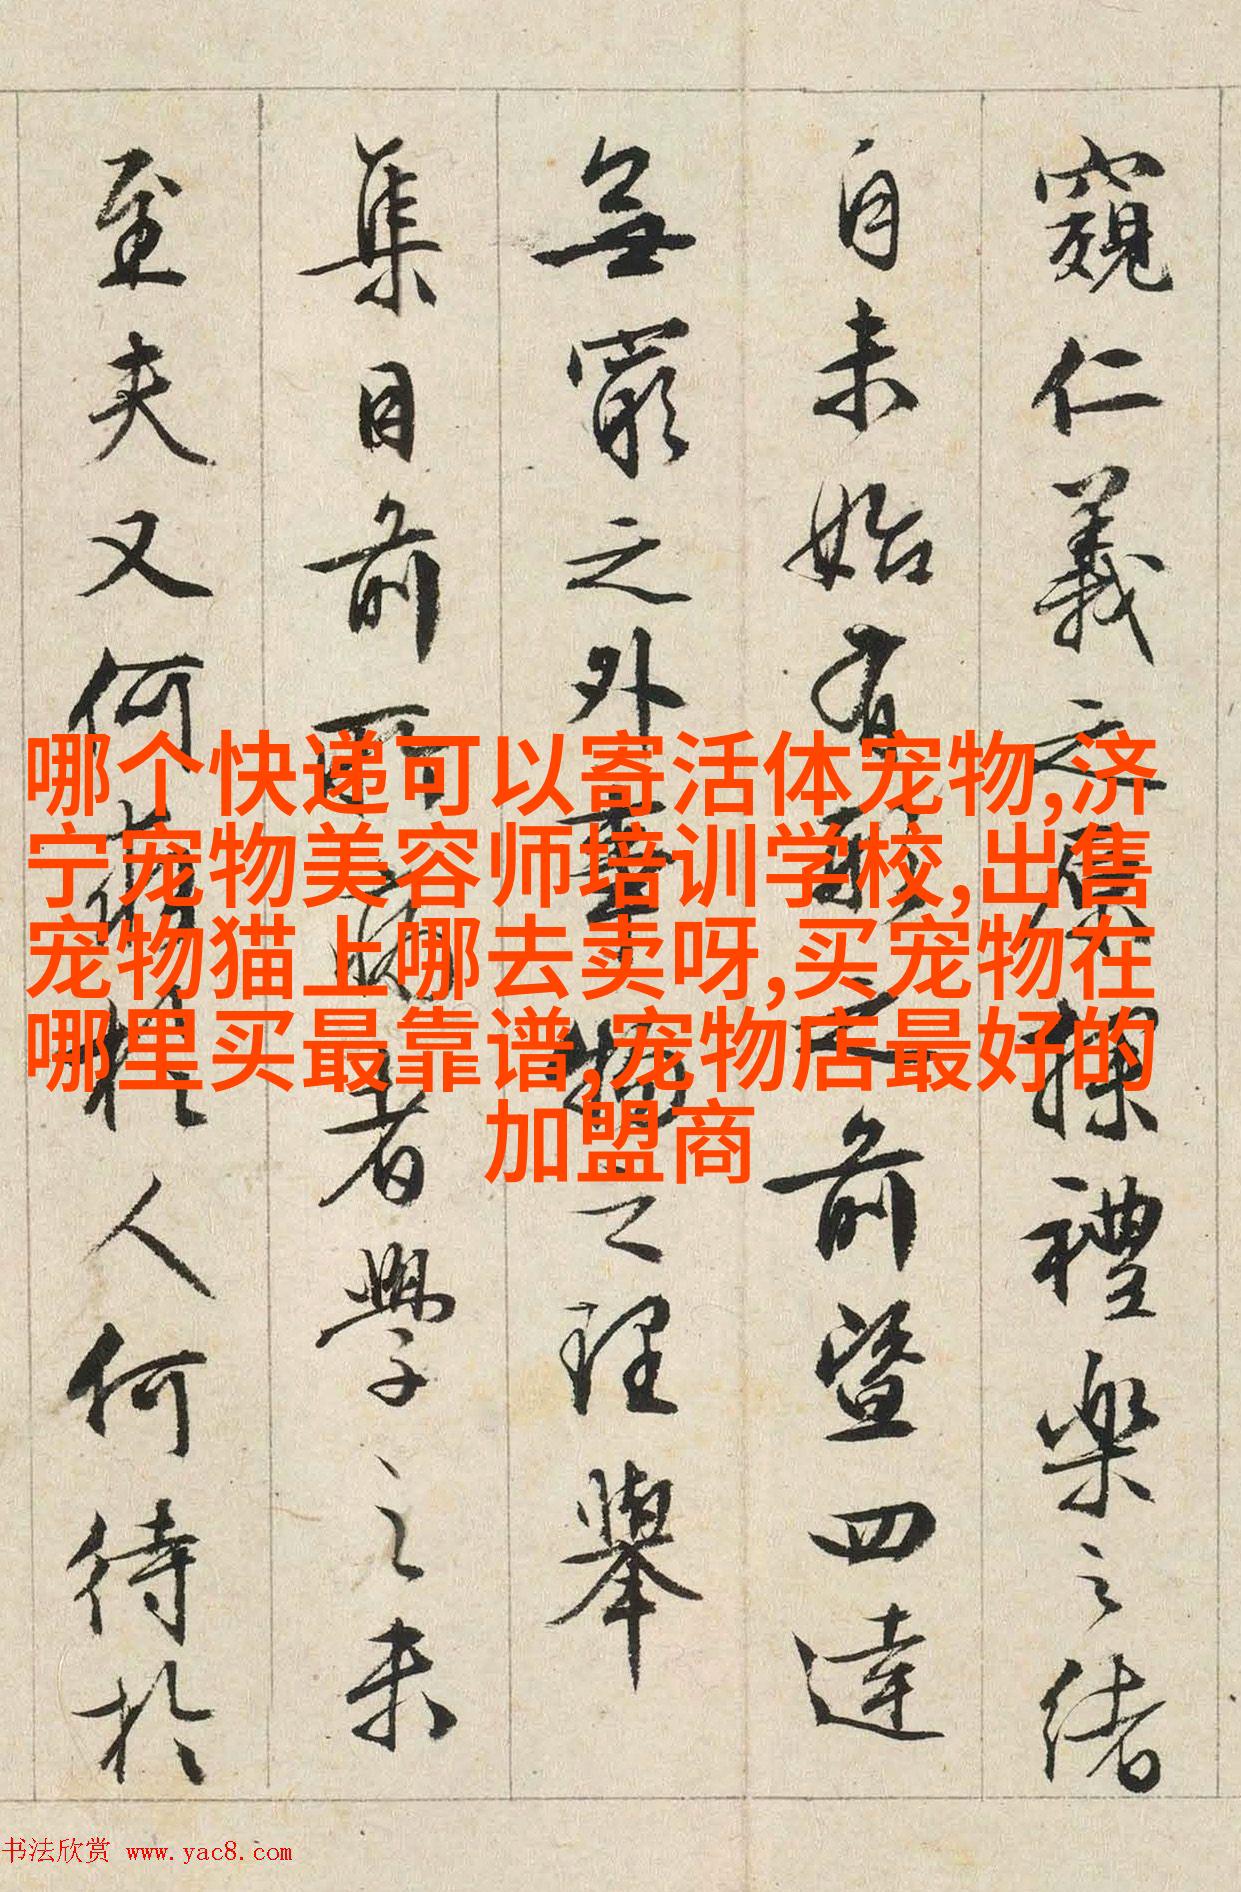 窺仁義之原探禮樂之緒
自未始有形之前暨四達
無窮之外事物之理舉
集目前所病者學之未
至夫又何於人何待於
哪个快递可以寄活体宠物,济
宁宠物美容师培训学校,出售
宠物猫上哪去卖呀,买宠物在
哪里买最靠谱,宠物店最好的
加盟商
书法欣赏 www.yac8.com